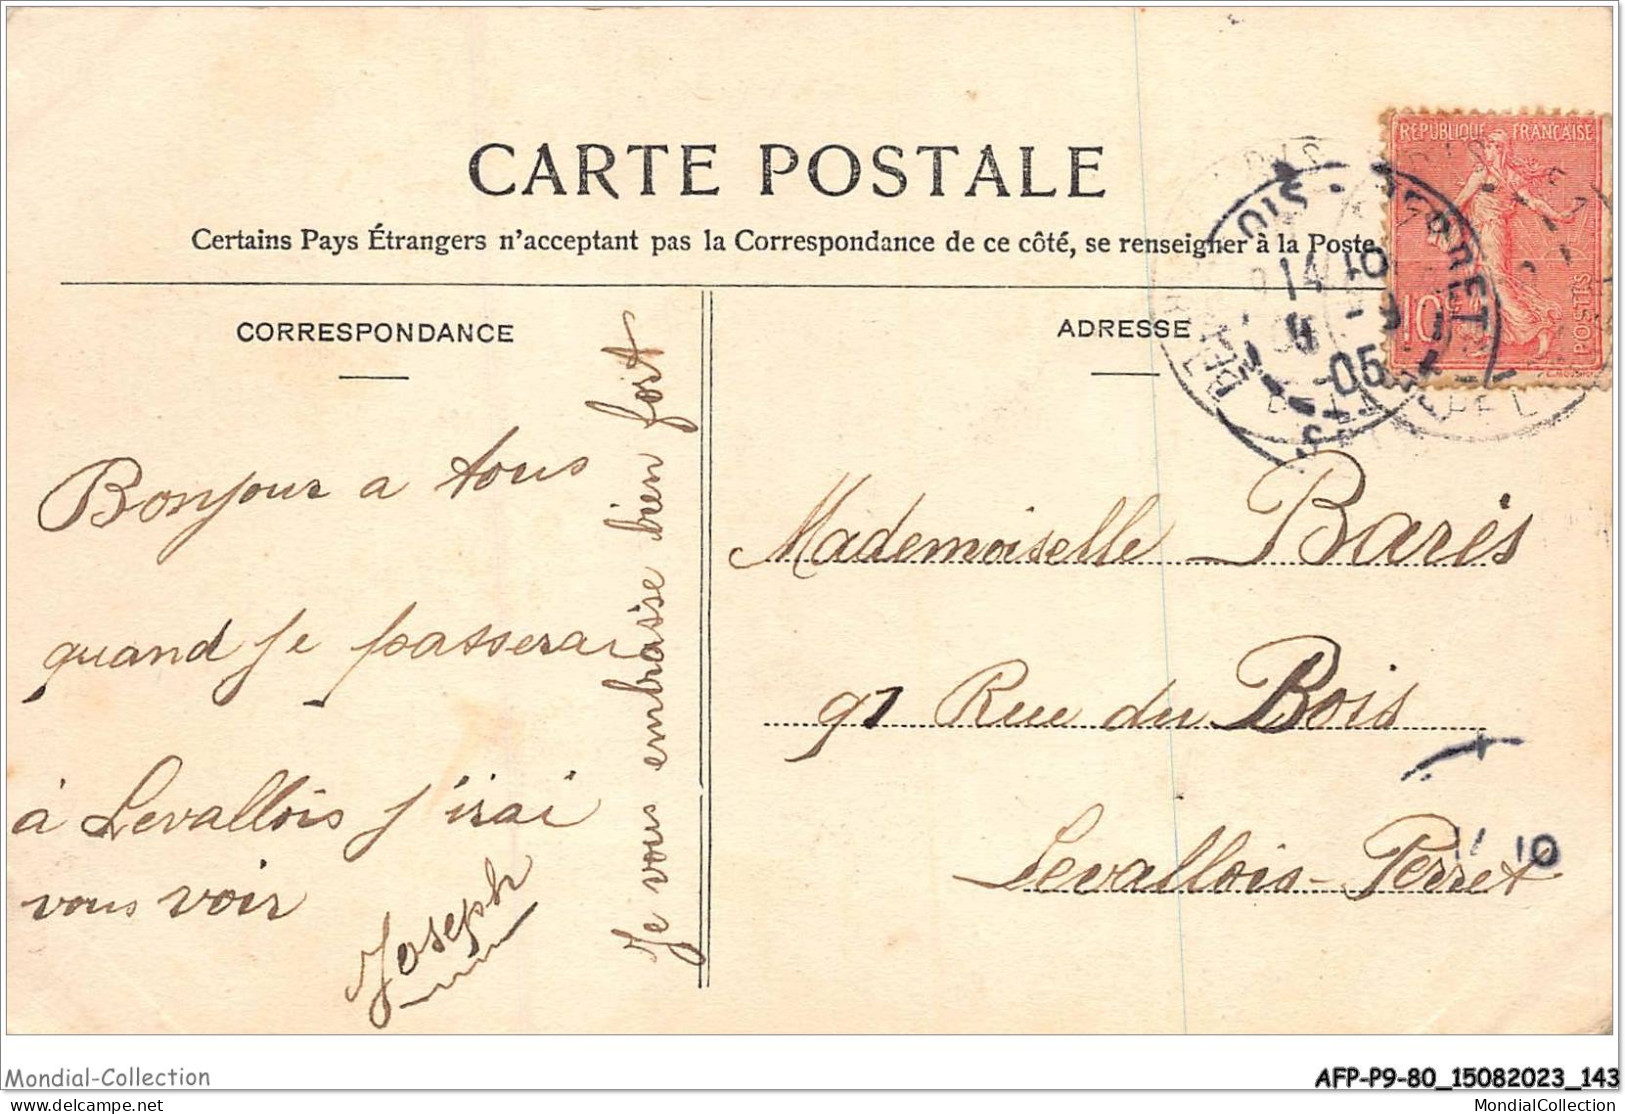 CARTE POSTALE
Certains Pays Étrangers n'acceptant pas la Correspondance de ce côté, se renseigner à la Poste
CORRESPONDANCE
ADRESSE
REPUBLIQUE FRANÇAISE
10c
POSTES
10
-05
Bonjour a tous
quand je passerai
à Levallois j'irai
vous voir
Joseph
Je vous embrasse bien fort
Mademoiselle Barès
91 Rue du Bois
Levallois-Perret
10
Mondial-Collection
AFP-P9-80_15082023_143
delcampe.net
MondialCollection